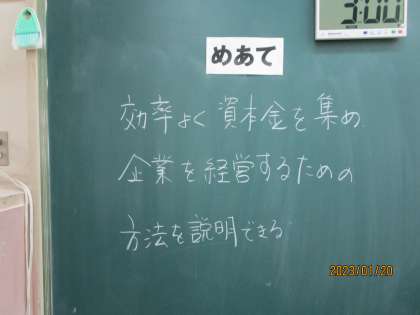 3:00
めあて
効率よく資本金を集め
企業を経営するための
方法を説明できる
2023/01/20